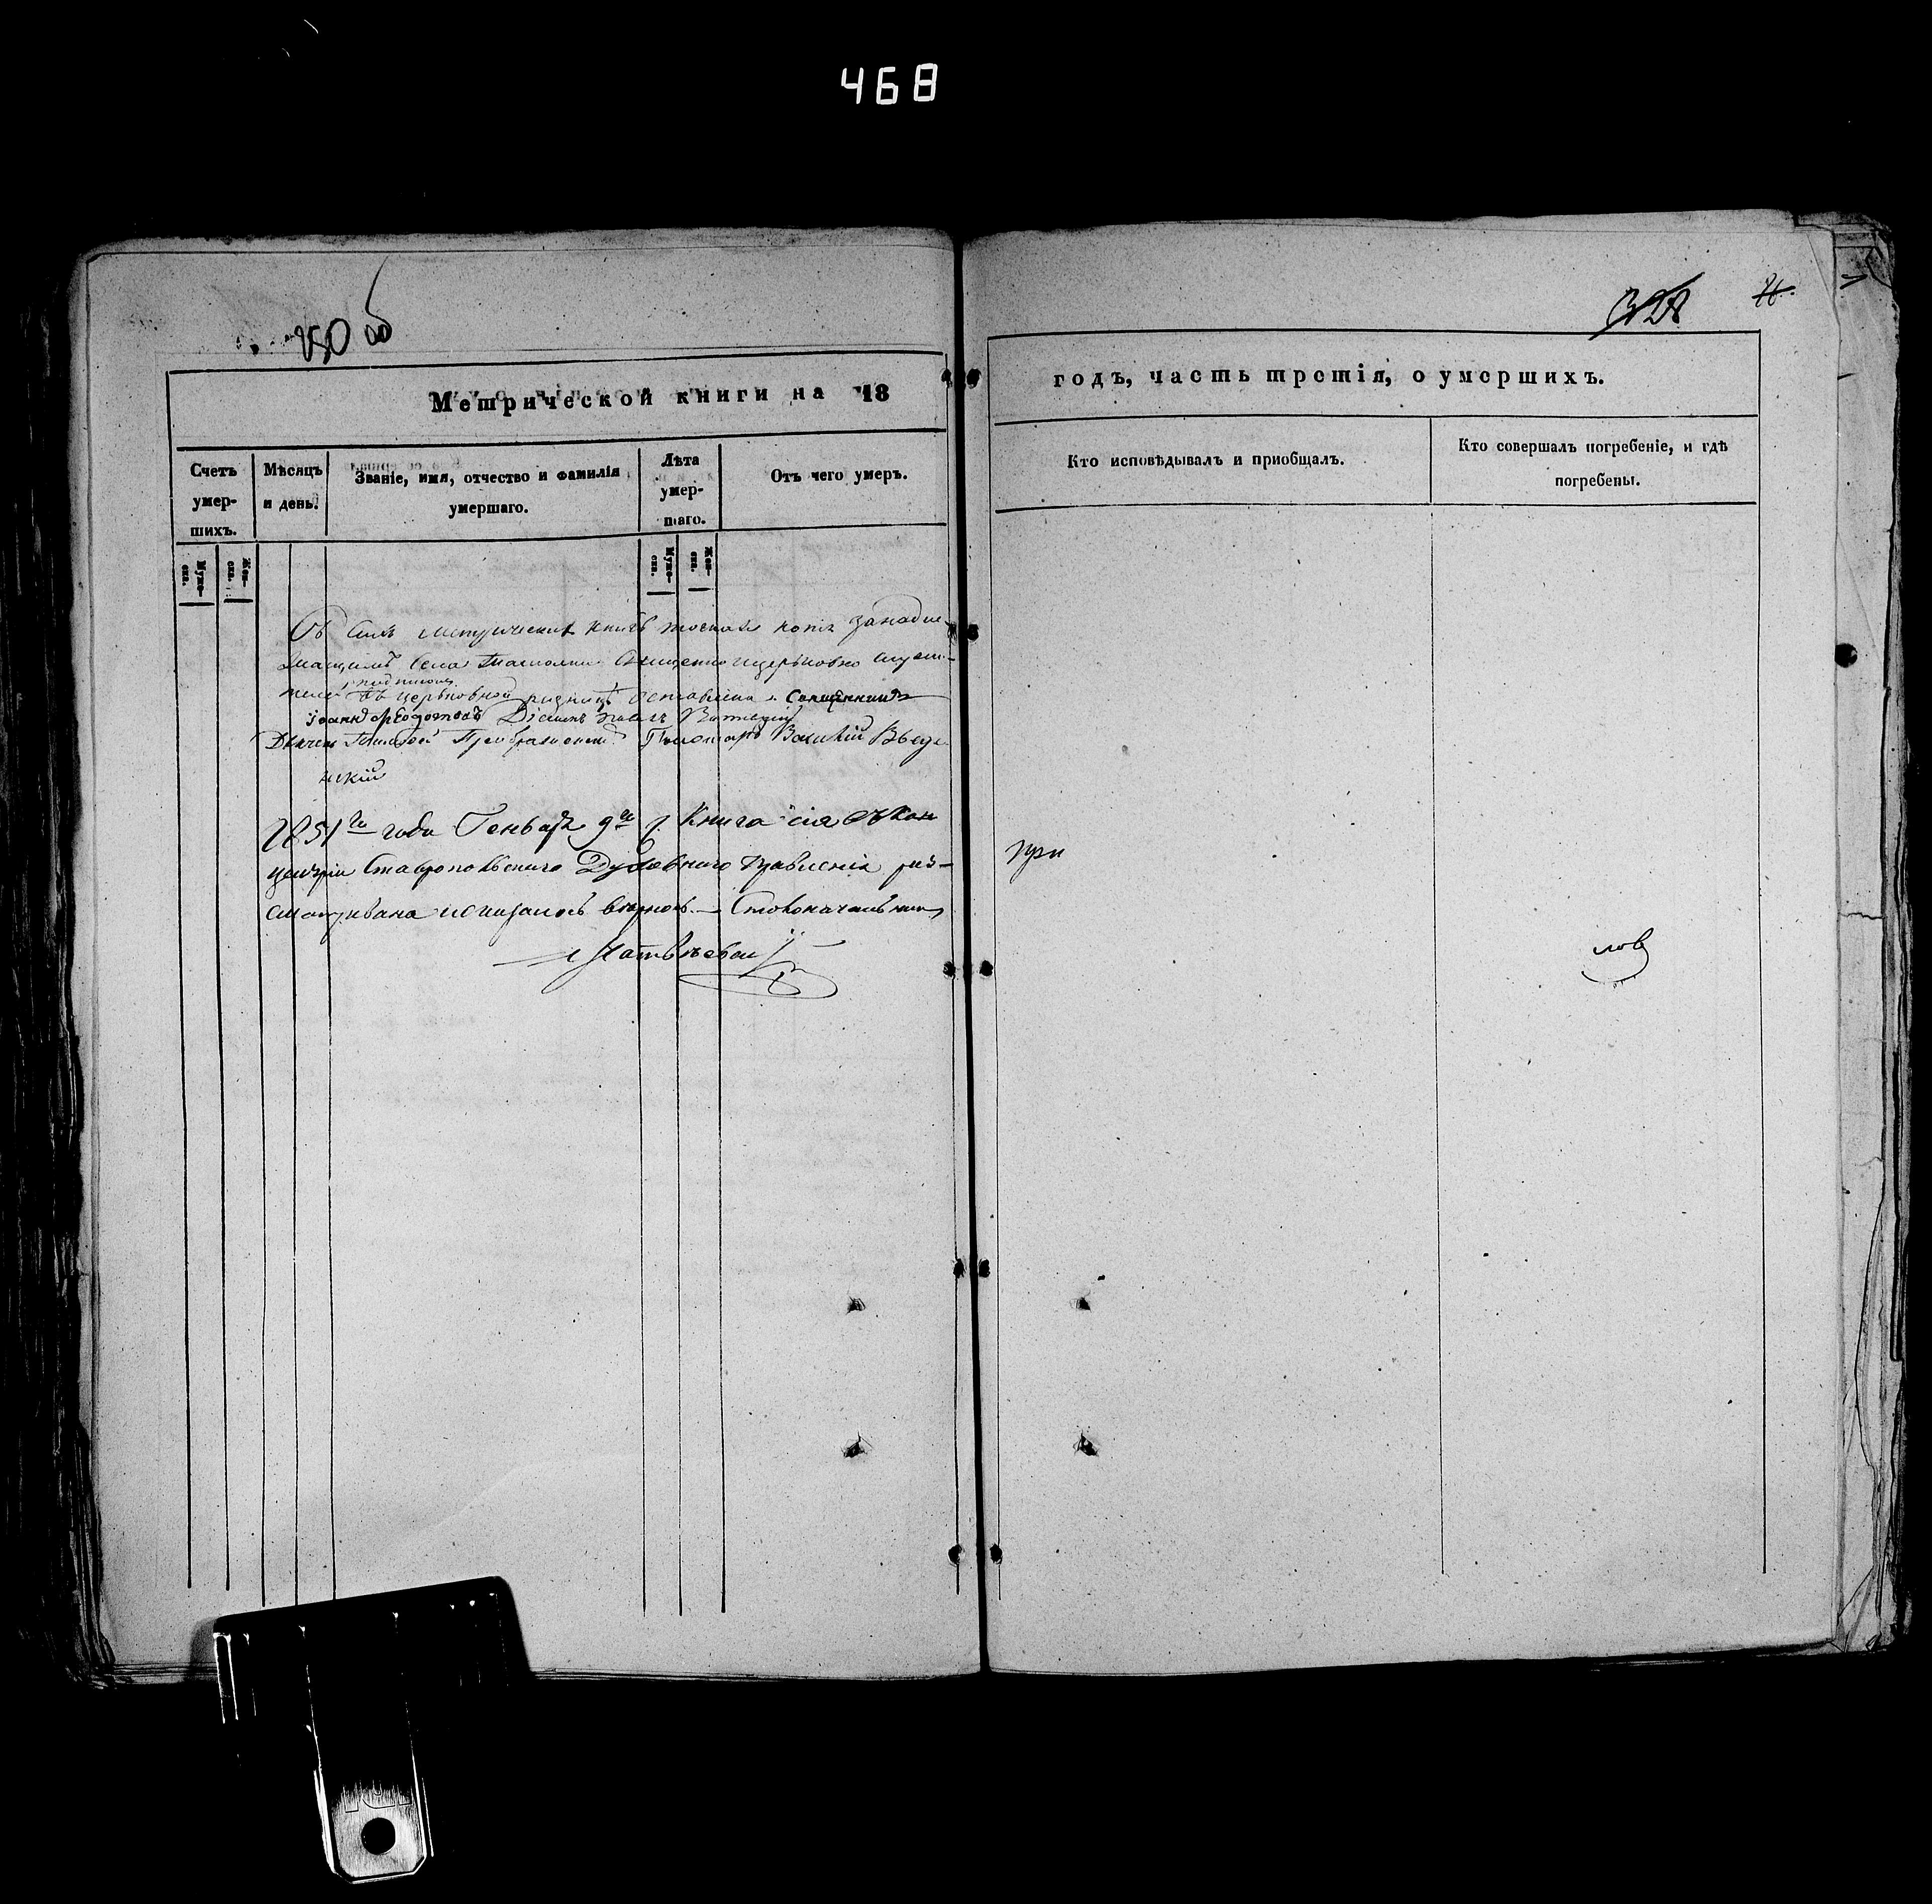 468
250 об
328 26.
Метрической книги на 18 годъ, часть третія, о умершихъ.
Счетъ умер-шихъ.
Мѣсяцъ и день.
Званіе, имя, отчество и фамилія умершаго.
Лѣта умер-шаго.
Отъ чего умеръ.
Кто исповѣдывалъ и приобщалъ.
Кто совершалъ погребеніе, и гдѣ погребены.
Муже-ска. Жен-ска. Муже-ска. Жен-ска.
Съ сихъ метрическихъ книгъ точная копія за надле-
жащимъ села Священно и церьковно служи-
подписомъ
телей въ церьковной ризницѣ оставлена. Священникъ
Іоаннъ Ѳедотовъ Діаконъ
Дьячекъ Преображенскій Пономарь Василій Введе
нскій
1851го года Генваря 9го д. Книга сія въ Кан
целяріи Ставропольскаго Духовнаго Правленія раз-
сматривана и оказалось вѣрною. — Столоначальникъ
Матвѣевскій
при
лов